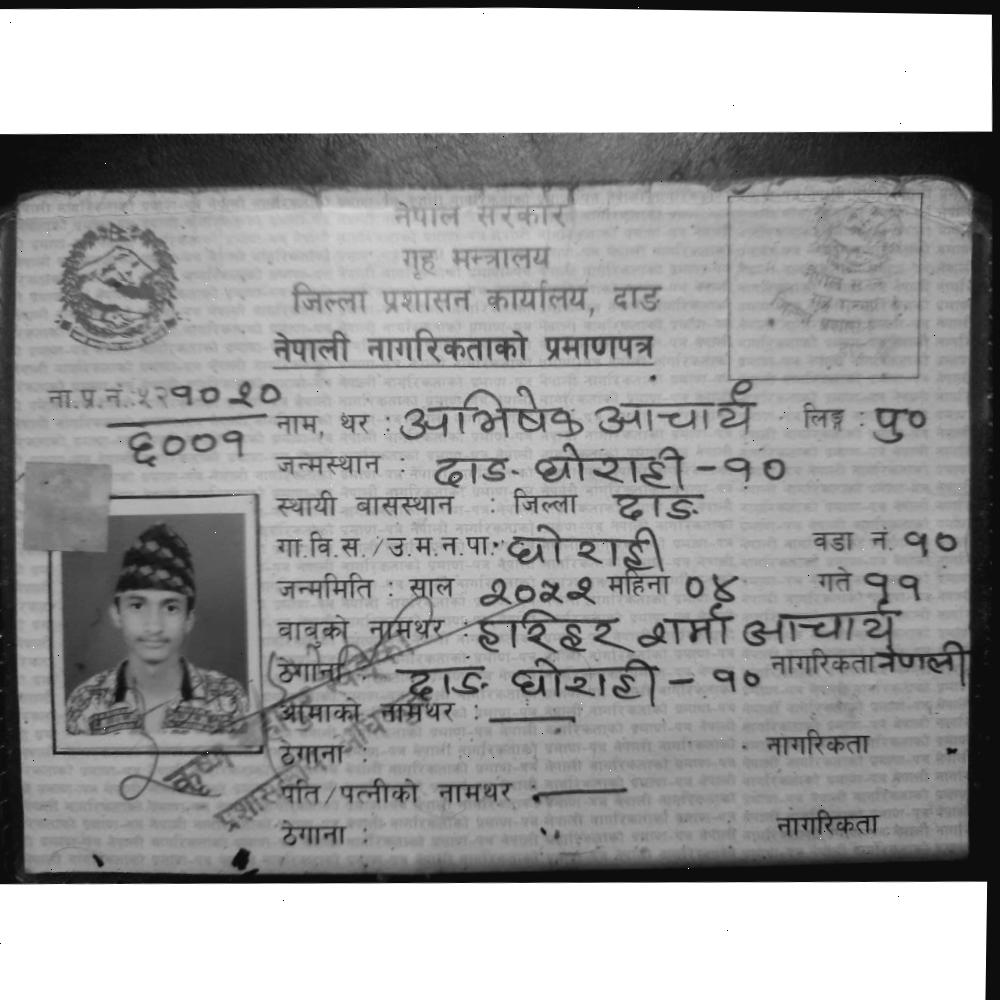 नेपाल सरकार
गृह मन्त्रालय
जिल्ला प्रशासन कार्यालय, दाङ
नेपाली नागरिकताको प्रमाणपत्र
ना.प्र.नं. ५२१०२०
६००१
नाम, थर : अभिषेक आचार्य लिङ्ग : पु०
जन्मस्थान : दाङ घोराही - १०
स्थायी बासस्थान : जिल्ला दाङ
गा.वि.स./उ.म.न.पा. घोराही वडा नं. १०
जन्ममिति : साल २०५२ महिना ०४ गते ११
बाबुको नामथर : हरिहर शर्मा आचार्य
ठेगाना : दाङ घोराही - १० नागरिकता नेपाली
आमाको नामथर : —
ठेगाना : नागरिकता
पति/पत्नीको नामथर : —
ठेगाना : नागरिकता